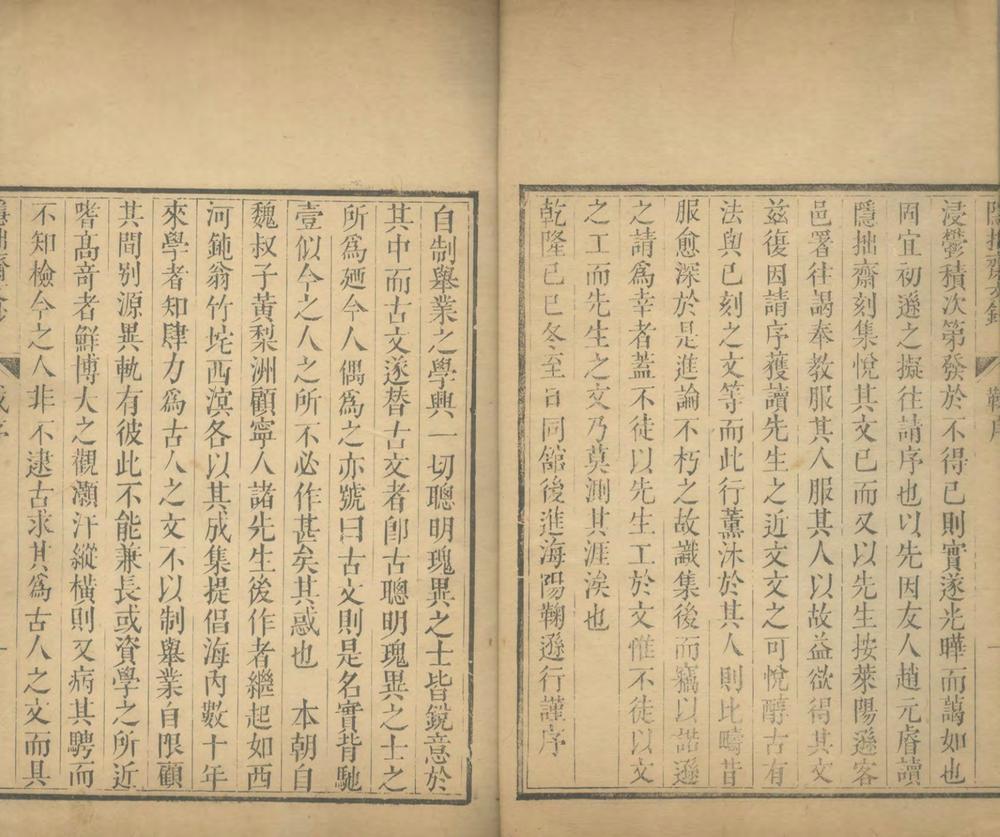 隱拙齋文鈔 鞠序 一
浸鬱積次第發於不得已則實遂光曄而藹如也
固宜初遜之擬往請序也以先因友人趙元睿讀
隱拙齋刻集悅其文已而又以先生按萊陽遜客
邑署往謁奉教服其人服其人以故益欲得其文
兹復因請序獲讀先生之近文文之可悅醇古有
法與已刻之文等而此行薰沐於其人則比疇昔
服愈深於是進論不朽之故識集後而竊以諾遜
之請為幸者蓋不徒以先生工於文惟不徒以文
之工而先生之文乃莫測其涯涘也
乾隆己巳冬至日同館後進海陽鞠遜行謹序
自制舉業之學興一切聰明瑰異之士皆鏡意於
其中而古文遂替古文者卽古聰明瑰異之士之
所為廼今人偶為之亦號曰古文則是名實背馳
壹似今之人之所不必作甚矣其惑也　本朝自
魏叔子黃梨洲顧寧人諸先生後作者繼起如西
河鈍翁竹垞西溟各以其成集提倡海內數十年
來學者知肆力為古人之文不以制舉業自限顧
其間别源異軌有彼此不能兼長或資學之所近
嗜高奇者鮮博大之觀灝汗縱橫則又病其騁而
不知檢今之人非不逮古求其為古人之文而具
隱拙齋文鈔 序 一